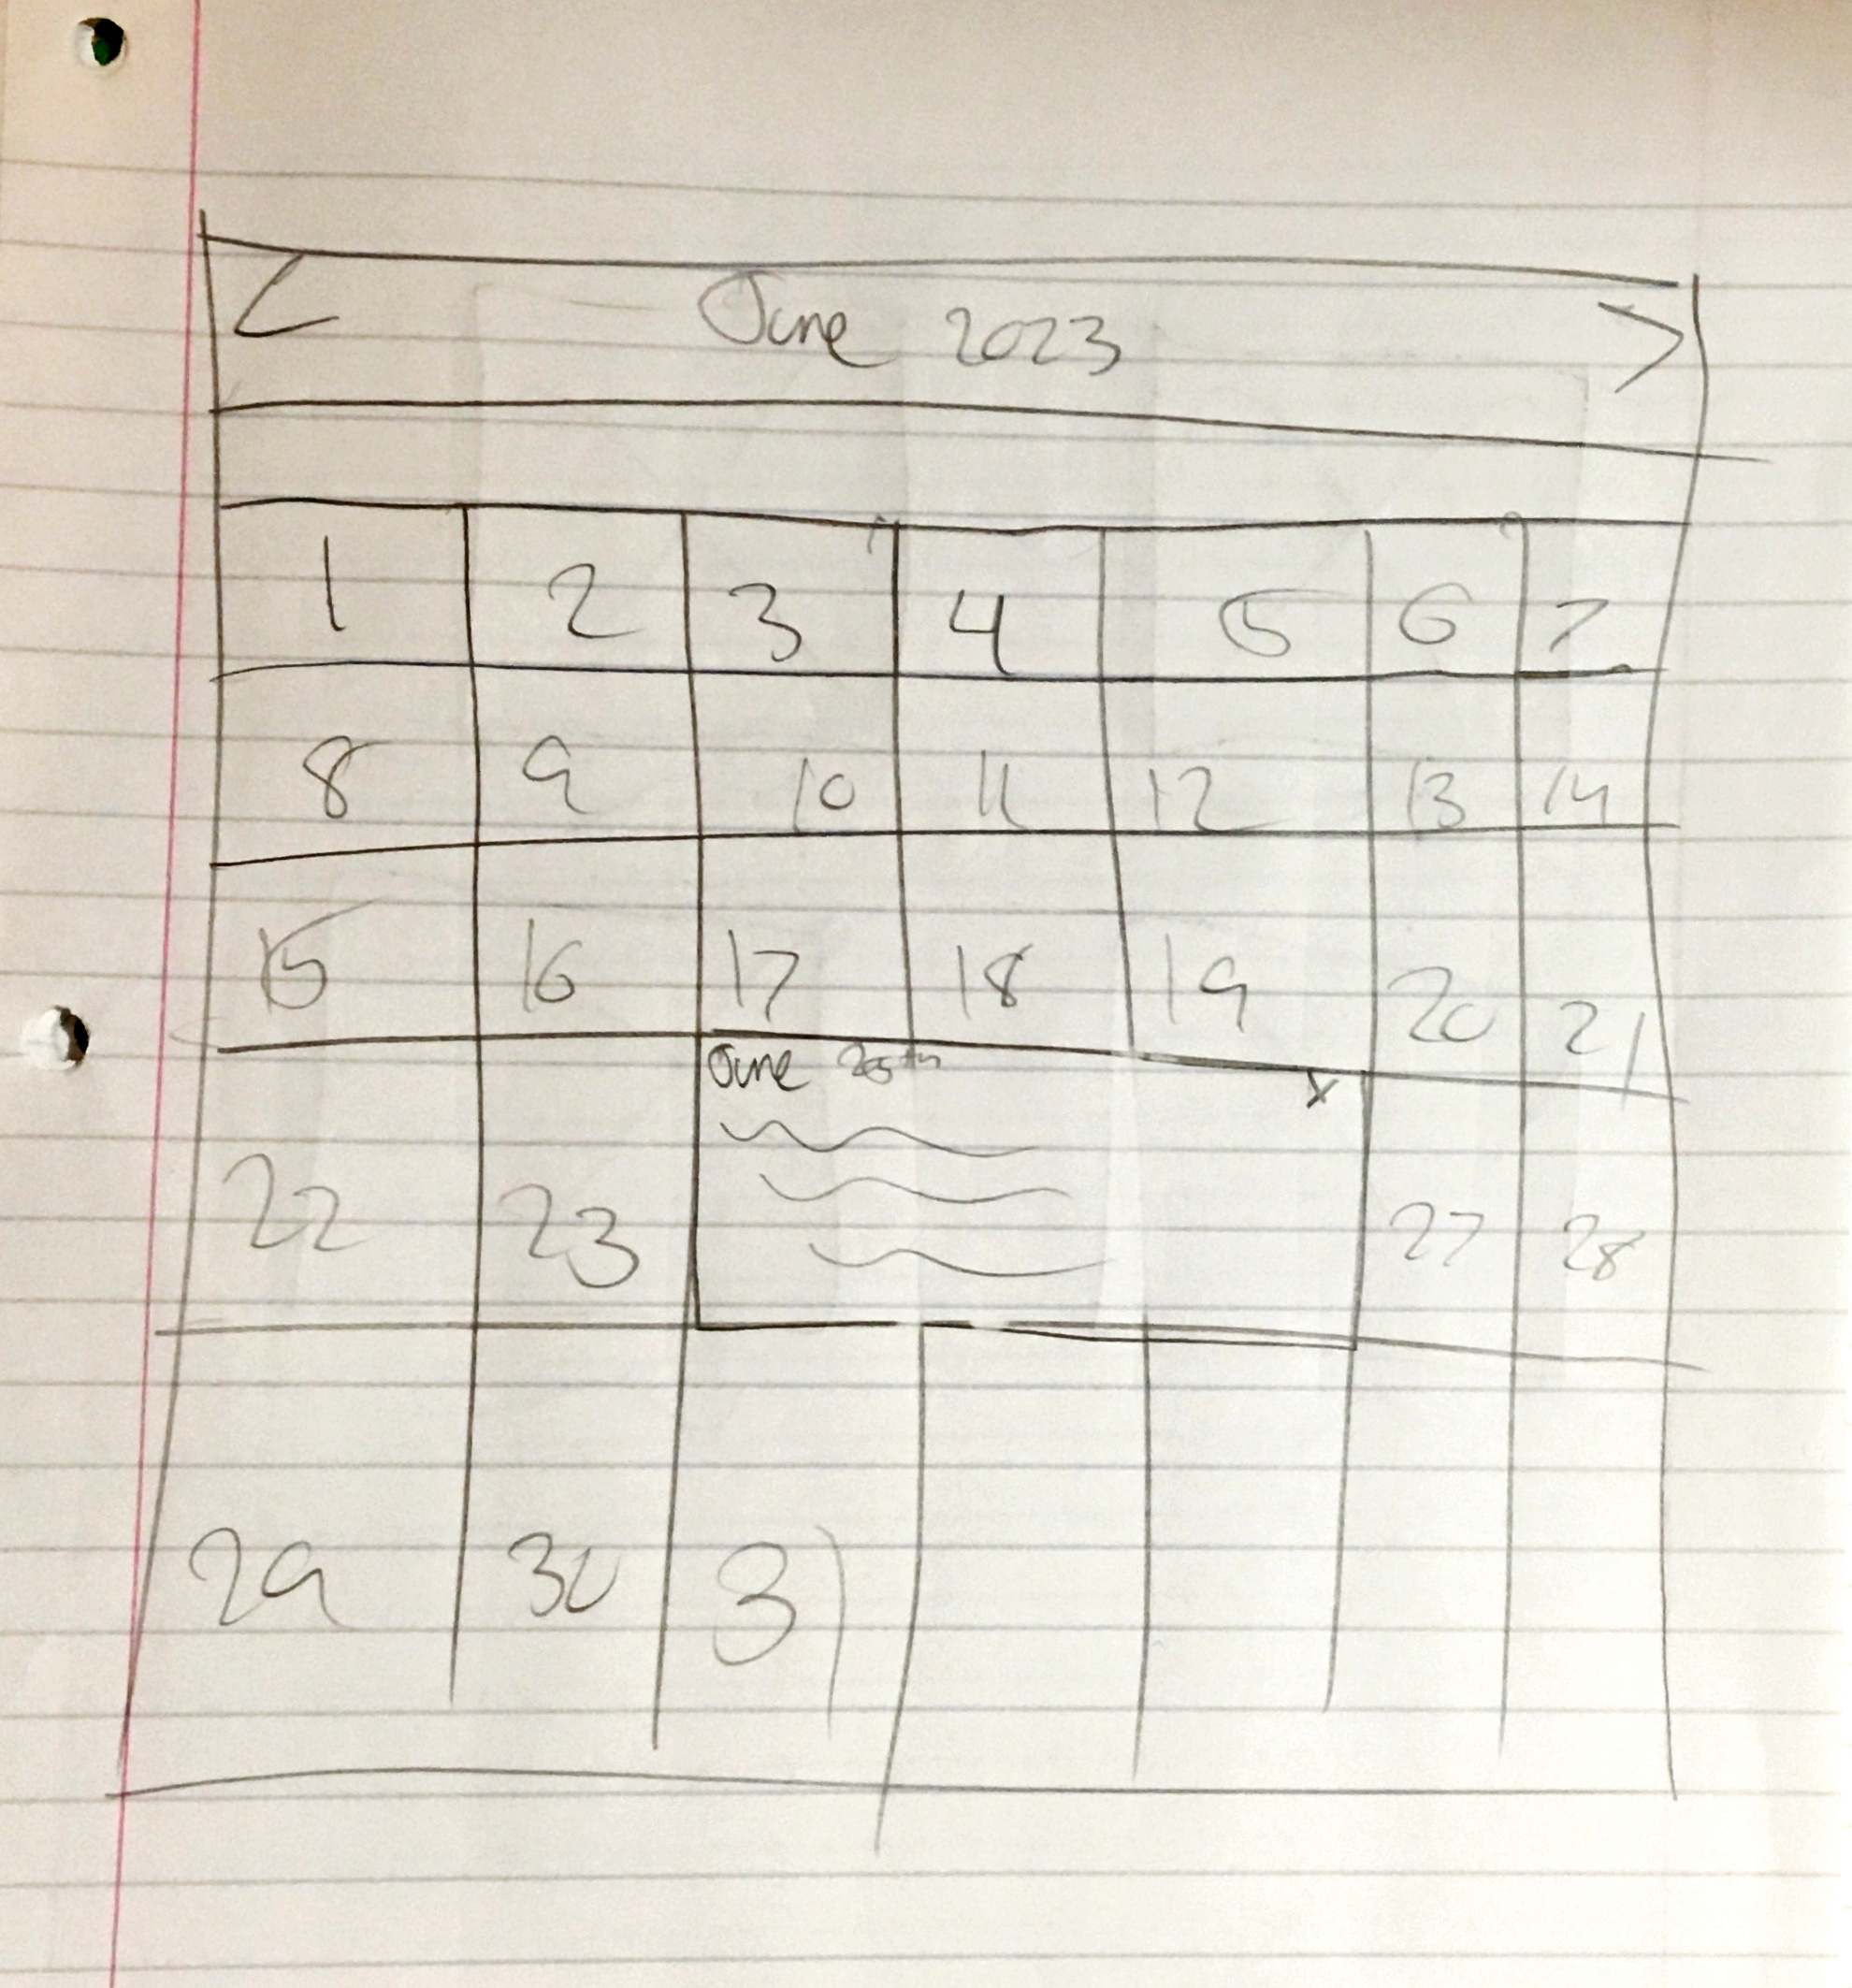 < June 2023 >
1 2 3 4 5 6 7
8 9 10 11 12 13 14
15 16 17 18 19 20 21
June 25th x
22 23 27 28
29 30 31